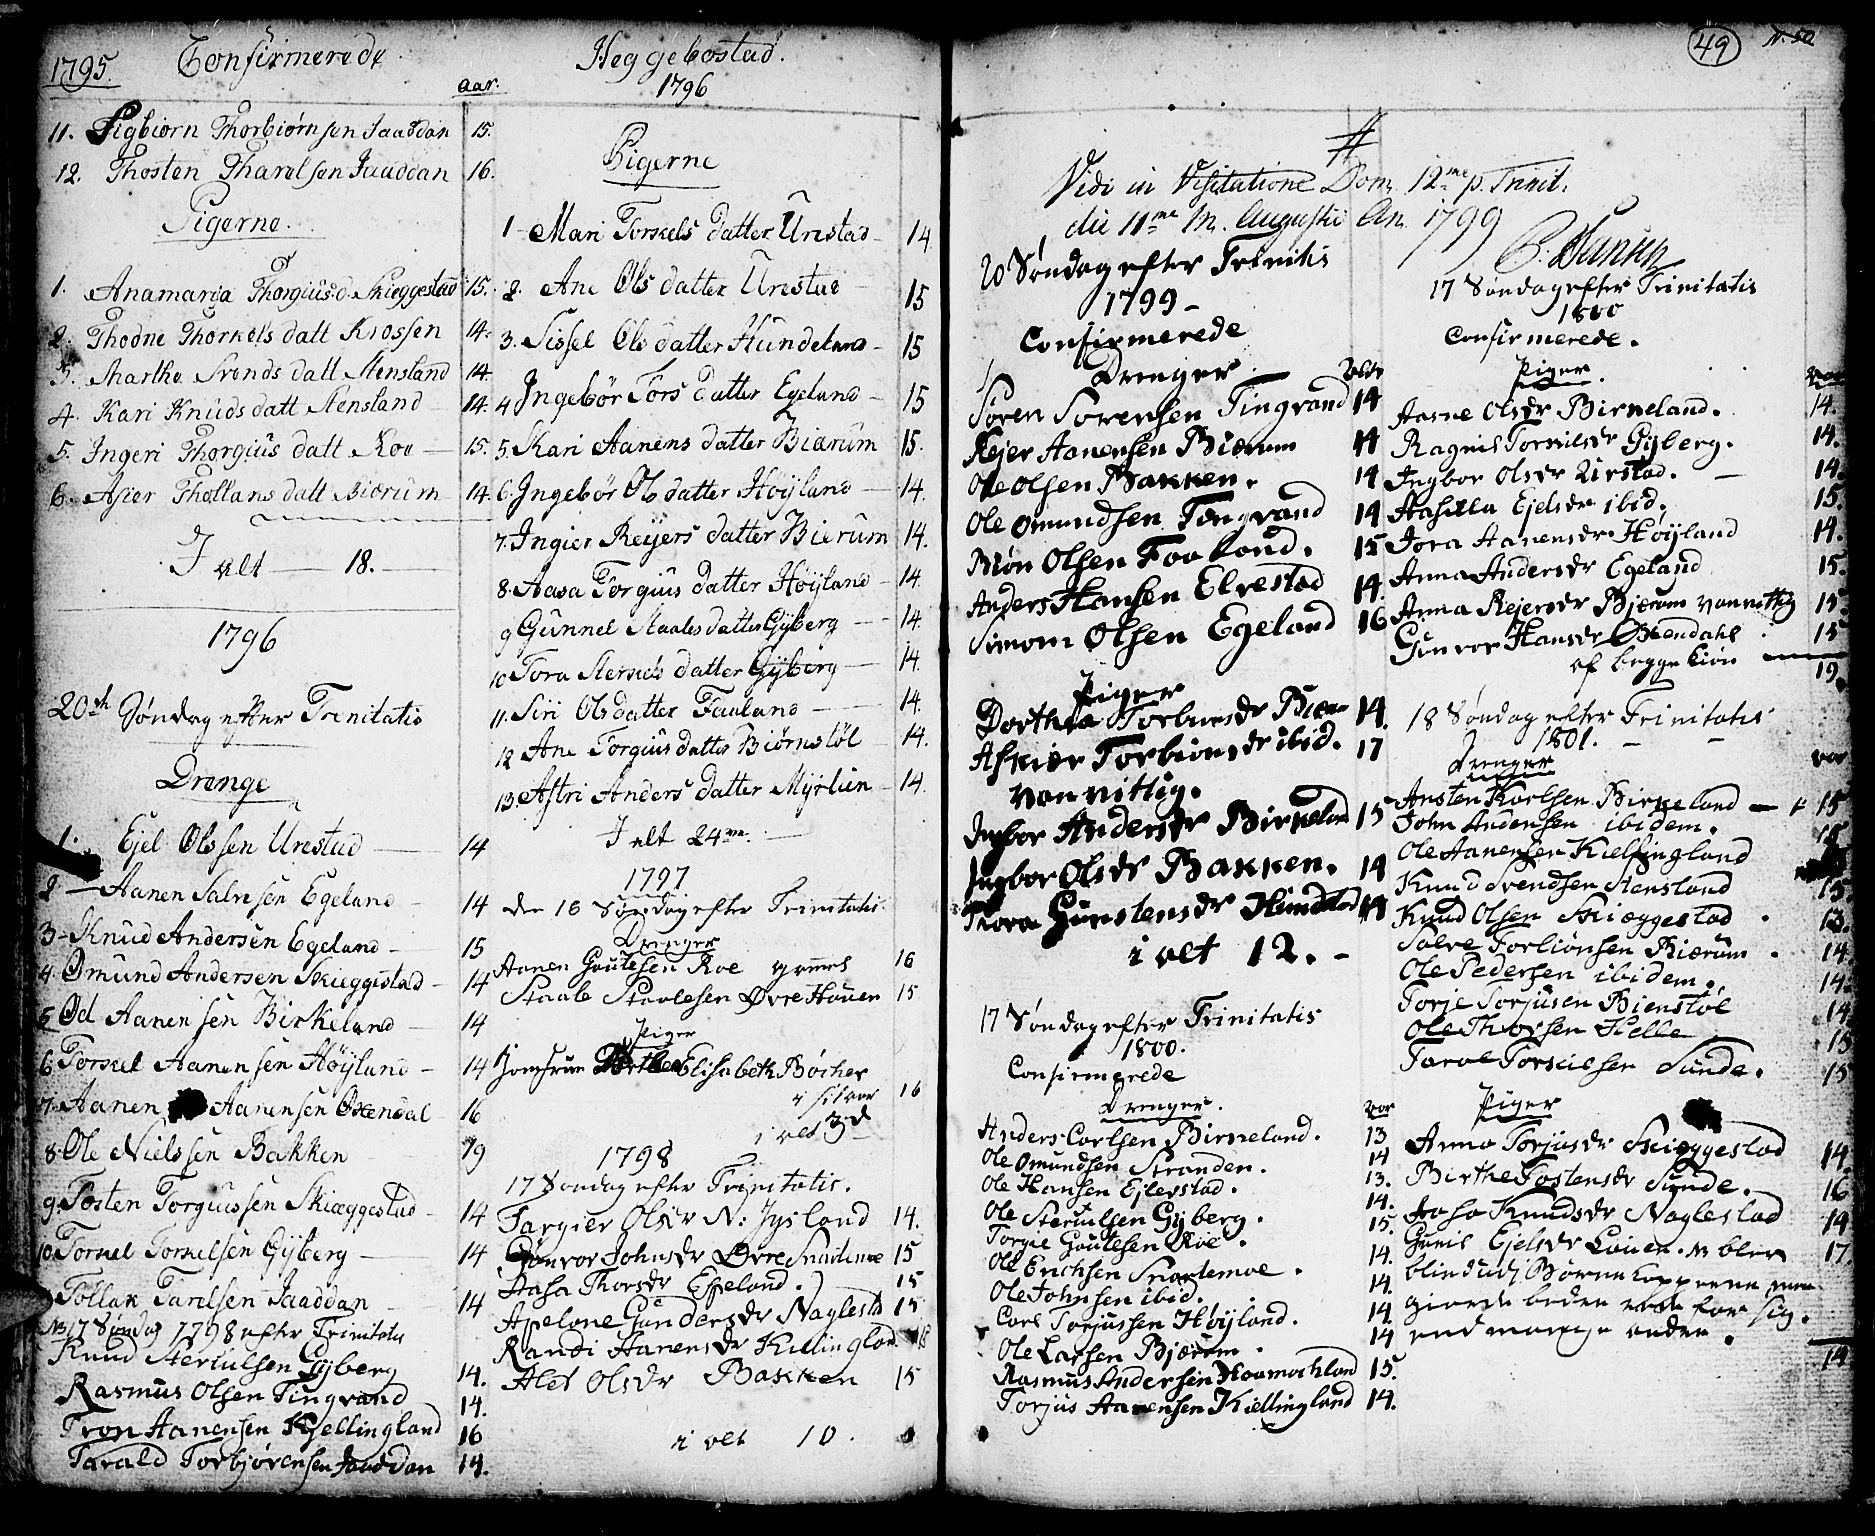 1795. Confirmerede
Aar.
11. Sigbiørn Thorbiørnsen Jaaddan 15.
12. Thosten Tharelsen Jaaddan 16.
Pigerne.
1. Anamaria Thorgiiusd. Skieggestad 15.
2. Thodne Thorkels datt Krossen 14.
3. Marthe Svends datt Stensland 14.
4. Kari Knuds datt Stensland 14.
5. Ingeri Thorgius datt Roe 15.
6. Asier Thollans datt Bierum 14.
I alt 18.
1796
20de Søndag efter Trinitatis
Drenge
1. Ejel Olssen Urestad 14
2 Aanen Salvesen Egeland 14
3 Knud Andersen Egeland 15
4. Omund Andersen Skieggestad 14
5 Od Aanensen Birkeland 14
6 Torkel Aanensen Høyland 14
7. Aanen Aanensen Oxendal 16
8. Ole Nielssen Bakken 19
9. Tosten Torguissen Skiæggestad 14
10. Torkel Torkelsen Gyberg 14
Tollak Tarilsen Jaaddan 14
NB 17 Søndag 1798 efter Trinitatis
Knud Sterkulsen Gyberg 14.
Rasmus Olsen Tingvand 14.
Tron Aanensen Kjellingland 16
Tarald Torbjørensen Jaaddan 14.
Heggebostad.
1796
Pigerne
1 Mari Torkels datter Urestad 14
2. Ane Ols datter Urestad 15
3. Sissel Ols datter Hundeland 15
4 Ingebor Tors datter Egeland 15
5. Kari Aanens datter Bierum 15.
6. Ingebør Ols datter Høyland 14.
7. Ingier Reyers datter Bierum 14.
8. Aasa Torgius datter Høyland 14.
9 Gunnel Staales datter Gyberg 14.
10 Tora Sterkels datter Gyberg 14.
11. Siri Olsdatter Fauland 14.
12 Ane Torgius datter Biørnstøl 14.
13. Astri Anders datter Myrlien 14.
I alt 24
1797
den 18 Søndag efter Trinitatis.
Drenger
Aanen Goutesen Roe gammel 16
Staale Staalesen Øvre Houen 15
Piger
Jomfrue Elisabeth Böcher
16
i alt 3
1798
17 Søndag efter Trinitatis.
Targier Olsdr N: Jysland 14.
Gunvor Johnsdr Øvre Snartemoe 15
Aasa Thorsdr Espeland. 15
Apelone Gundersdr Naglestd 15
Randi Aanensdr Killingland
Alet Olsdr Bakken 15
i alt 10.
49
Vidi in Visitatione Dom. 12me p. Trinit.
die 11me M. Augustii An. 1799
P. Hansen
20 Søndag efter Trinitis
1799
Confirmerede
Drenger
Søren Sørensen Tingvand 14
Rejer Aanensen Bierum 14
Ole Olsen Bakken. 14
Ole Omundsen Tingvand 14
Biøn Olsen Fouland. 15
Anders Hansen Elvestad 14.
Simom Olsen Egeland 16
Piger
Dorthea Torbiønsdr Bierum 14.
Askier Torbiønsdr ibid. 17
vanvittig.
Ingbor Andersdr Birkeland 15
Ingbor Olsdr Bakken. 14
Thora Gunstensdr Hundeland 14
i alt 12.
17 Søndag efter Trinitatis
1800.
Confirmerede
Drenger. aar
Anders Carlsen Birkeland. 13
Ole Omundsen Stranden. 14
Ole Hansen Ejlevstad. 13.
Ole Sterkulsen Gyberg. 14.
Torgie Goutesen Roe. 15
Ole Erichsen Snartemoe. 14.
Ole Johnsen ibid. 14.
Carl Torjussen Høyland. 14
Ole Larsen Bjærum. 14
Rasmus Andersen Houmochland 15.
Torjus Aanensen Kiellingland 14.
17 Søndag efter Trinitatis
1800
Confirmerede.
Piger.
Aasne Olsdr Birkeland. 14.
Ragnil Torkilsdr Gyberg. 14.
Ingbor Olsdr Urstad. 14
Aasilla Ejelsdr ibid. 15.
Tora Aanensdr Høyland 14.
Anna Andersdr Egeland 15.
Anna Rejersdr Bjærum vanvittig 15.
Gunvor Hansdr Oxendahl 15
af begge Kiøn 19.
18 Søndag efter Trinitatis
1801.
Drenger aar
Ansten Karlsen Birkeland 15
John Andersen ibidem.
Ole Aanensen Kiellingland
Knud Svendsen Stensland 15
Knud Olsen Skiæggestad 13.
Salve Torbiønsen Bierum 14.
Ole Pedersen ibidem. 14.
Torje Torjusen Bienstøl 14
Ole Thorsen Helle 15
Tarve Torkielsen Sunde. 15
Piger
Anna Torjusdr Skiæggestad 14.
Birthe Tostensdr Sunde. 16
Aasa Knudsdr Naglestad 14
Gunil Ejelsdr Louen. NB blev 17.
blind udj Børne Kopperne men
giorde beden rede for sig.
end mange anden.
14